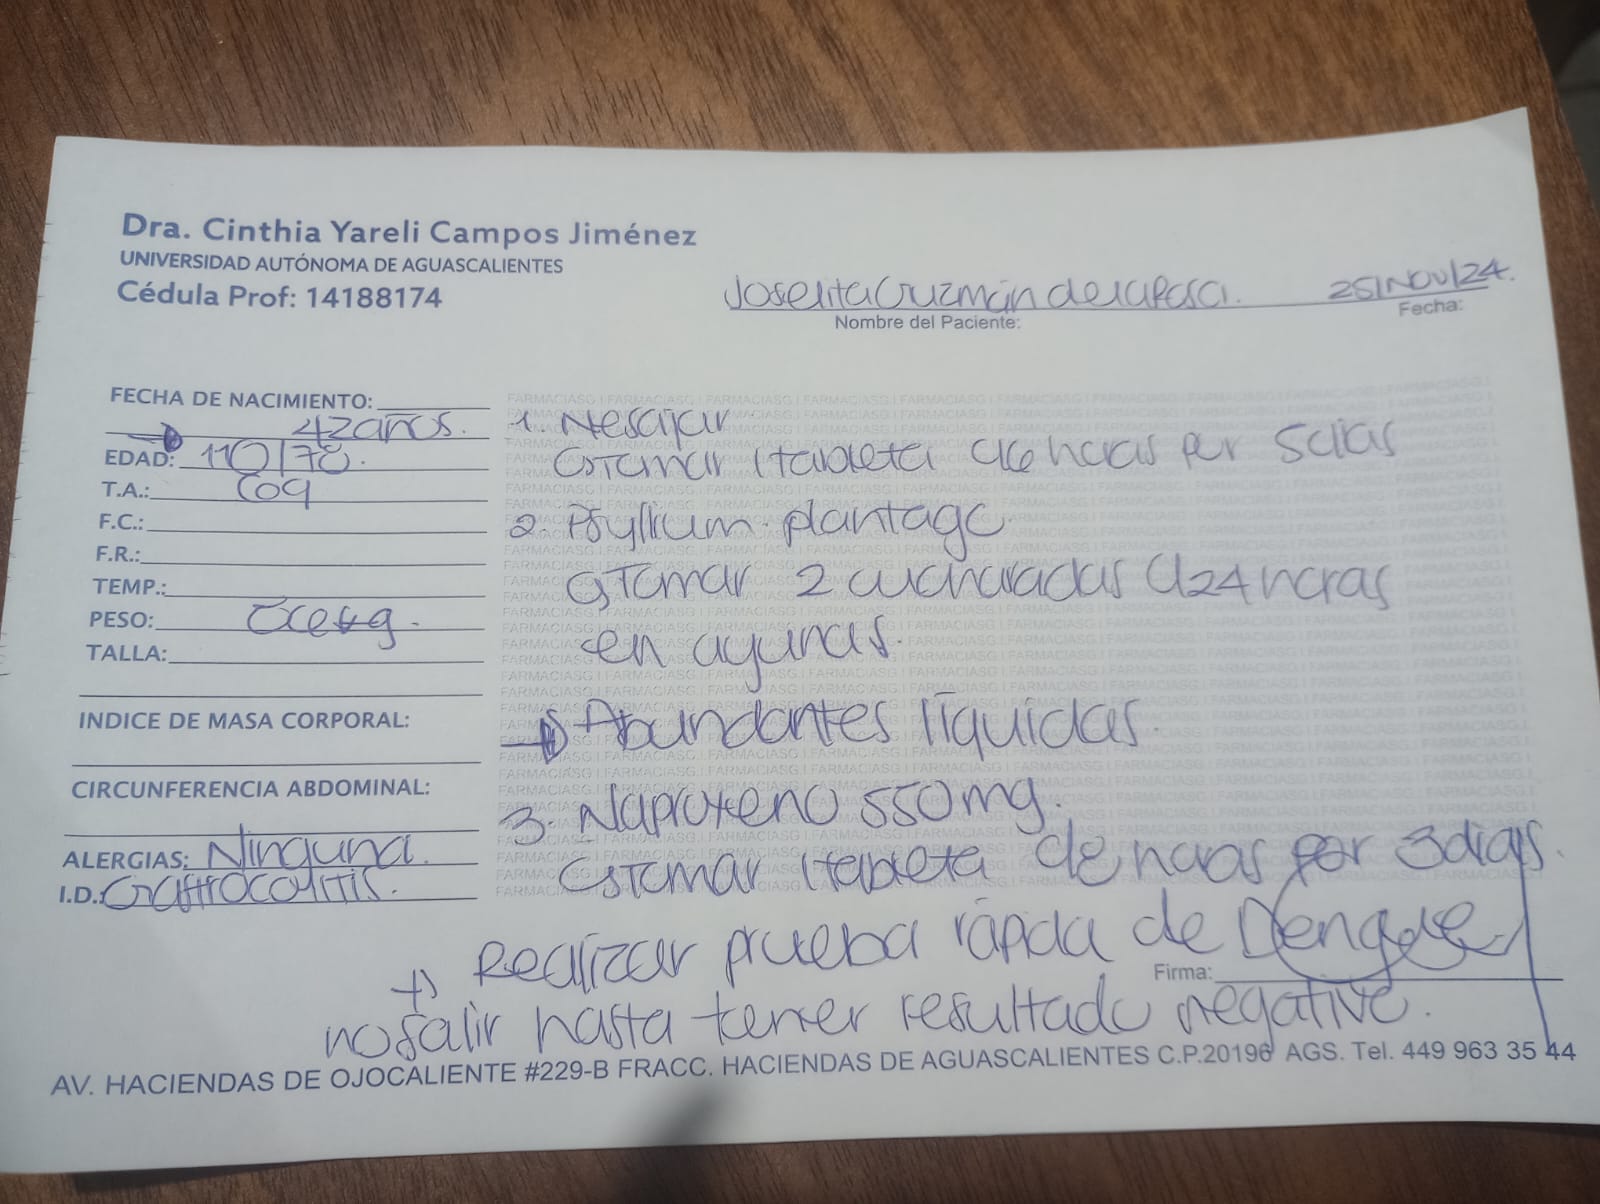 Dra. Cinthia Yareli Campos Jiménez
UNIVERSIDAD AUTÓNOMA DE AGUASCALIENTES
Cédula Prof: 14188174
Guzmán de la Rosa. 25/NOV/24.
Nombre del Paciente: Fecha:
FECHA DE NACIMIENTO:
42 años.
EDAD: 110/78.
T.A.:
F.C.:
F.R.:
TEMP.:
PESO:
TALLA:
INDICE DE MASA CORPORAL:
CIRCUNFERENCIA ABDOMINAL:
ALERGIAS: Ninguna.
I.D.: Gastrocolitis.
1. Nesajar
Tomar 1 tableta horas por 5 días
2. Psyllium plantago.
Tomar 2 cucharadas c/24 horas
en ayunas.
Abundantes líquidos.
3. Naproxeno 550mg.
Tomar 1 tableta horas por 3 días.
Realizar prueba rápida de Dengue
Firma:
no salir hasta tener resultado negativo.
AV. HACIENDAS DE OJOCALIENTE #229-B FRACC. HACIENDAS DE AGUASCALIENTES C.P.20196 AGS. Tel. 449 963 35 44